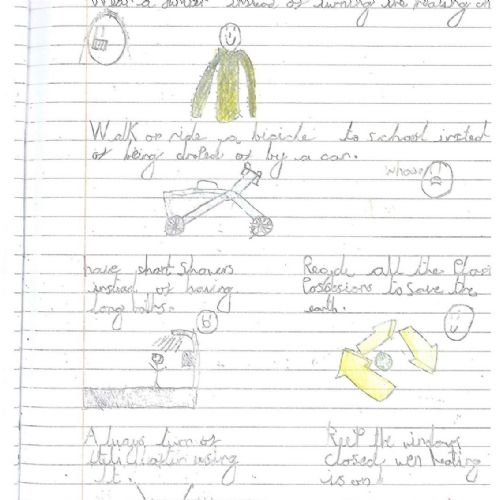 Wear a instead of turning the heating on
Walk or ride a bicicle to school insted
of being droped of by a car.
have short showers
instead of having
long baths.
Recycle all the
Possesions to save the
earth.
Always turn of
after using
it.
Keep the windows
closed wen heating
is on